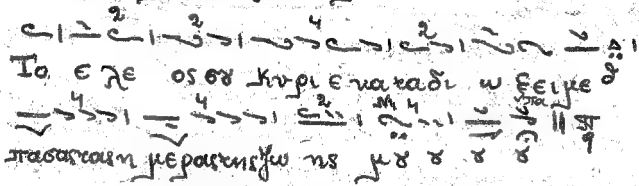 Το ε λε ος σȣ Κυρι ε καταδι ω ξει με
πασας τας η μερας της ζω ης μȣ ȣ ȣ ȣ